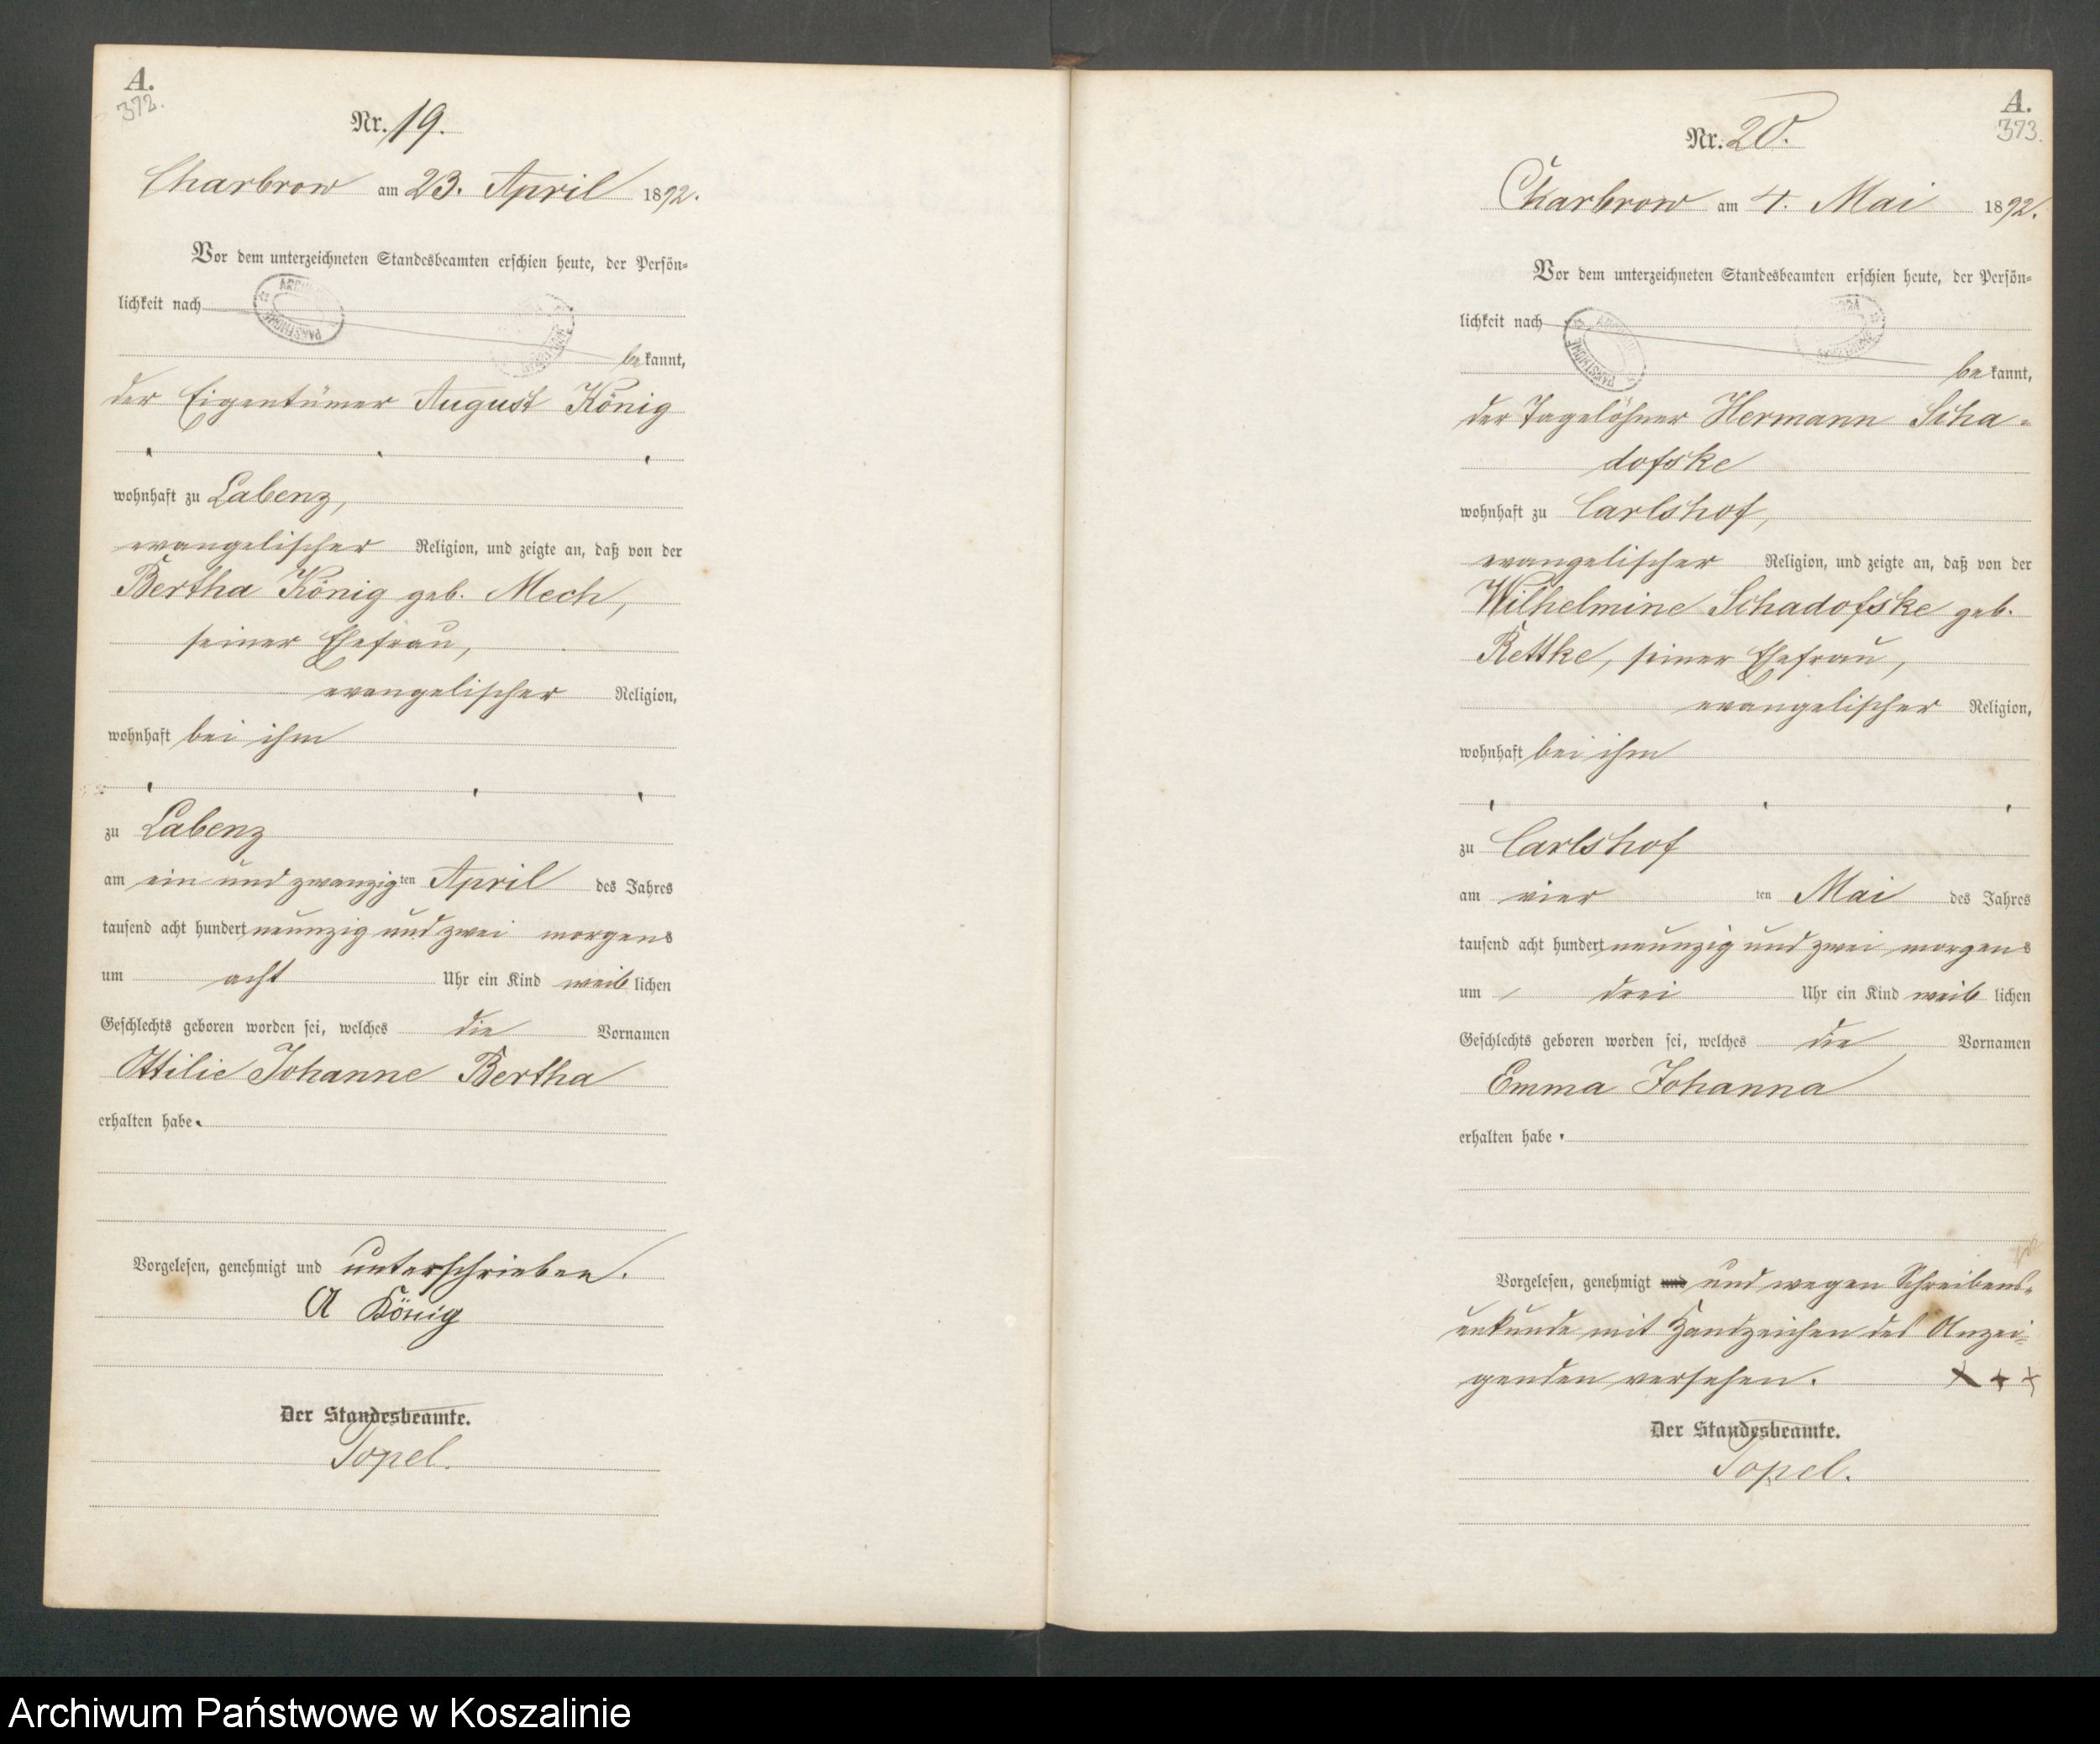 A.
372.
Nr. 19.
Charbrow am 23. April 1892.
Vor dem unterzeichneten Standesbeamten erschien heute, der Persön-
lichkeit nach
bekannt,
der Eigentümer August König
wohnhaft zu Labenz,
evangelischer Religion, und zeigte an, daß von der
Bertha König geb. Mech,
seiner Ehefrau,
evangelischer Religion,
wohnhaft bei ihm
zu Labenz
am ein und zwanzigten April des Jahres
tausend acht hundert neunzig und zwei morgens
um acht Uhr ein Kind weiblichen
Geschlechts geboren worden sei, welches die Vornamen
Ottilie Johanne Bertha
erhalten habe.
Vorgelesen, genehmigt und unterschrieben.
A König
Der Standesbeamte.
Topel.
A.
373.
Nr. 20.
Charbrow am 4. Mai 1892.
Vor dem unterzeichneten Standesbeamten erschien heute, der Persön-
lichkeit nach
bekannt,
der Tagelöhner Hermann Scha-
dofske
wohnhaft zu Carlshof,
evangelischer Religion, und zeigte an, daß von der
Wilhelmine Schadofske geb.
Rettke, seiner Ehefrau,
evangelischer Religion,
wohnhaft bei ihm
zu Carlshof
am vier ten Mai des Jahres
tausend acht hundert neunzig und zwei morgens
um drei Uhr ein Kind weiblichen
Geschlechts geboren worden sei, welches die Vornamen
Emma Johanna
erhalten habe.
Vorgelesen, genehmigt und und wegen Schreibens-
unkunde mit Handzeichen des Anzei-
genden versehen. + + +
Der Standesbeamte.
Topel.
Archiwum Państwowe w Koszalinie